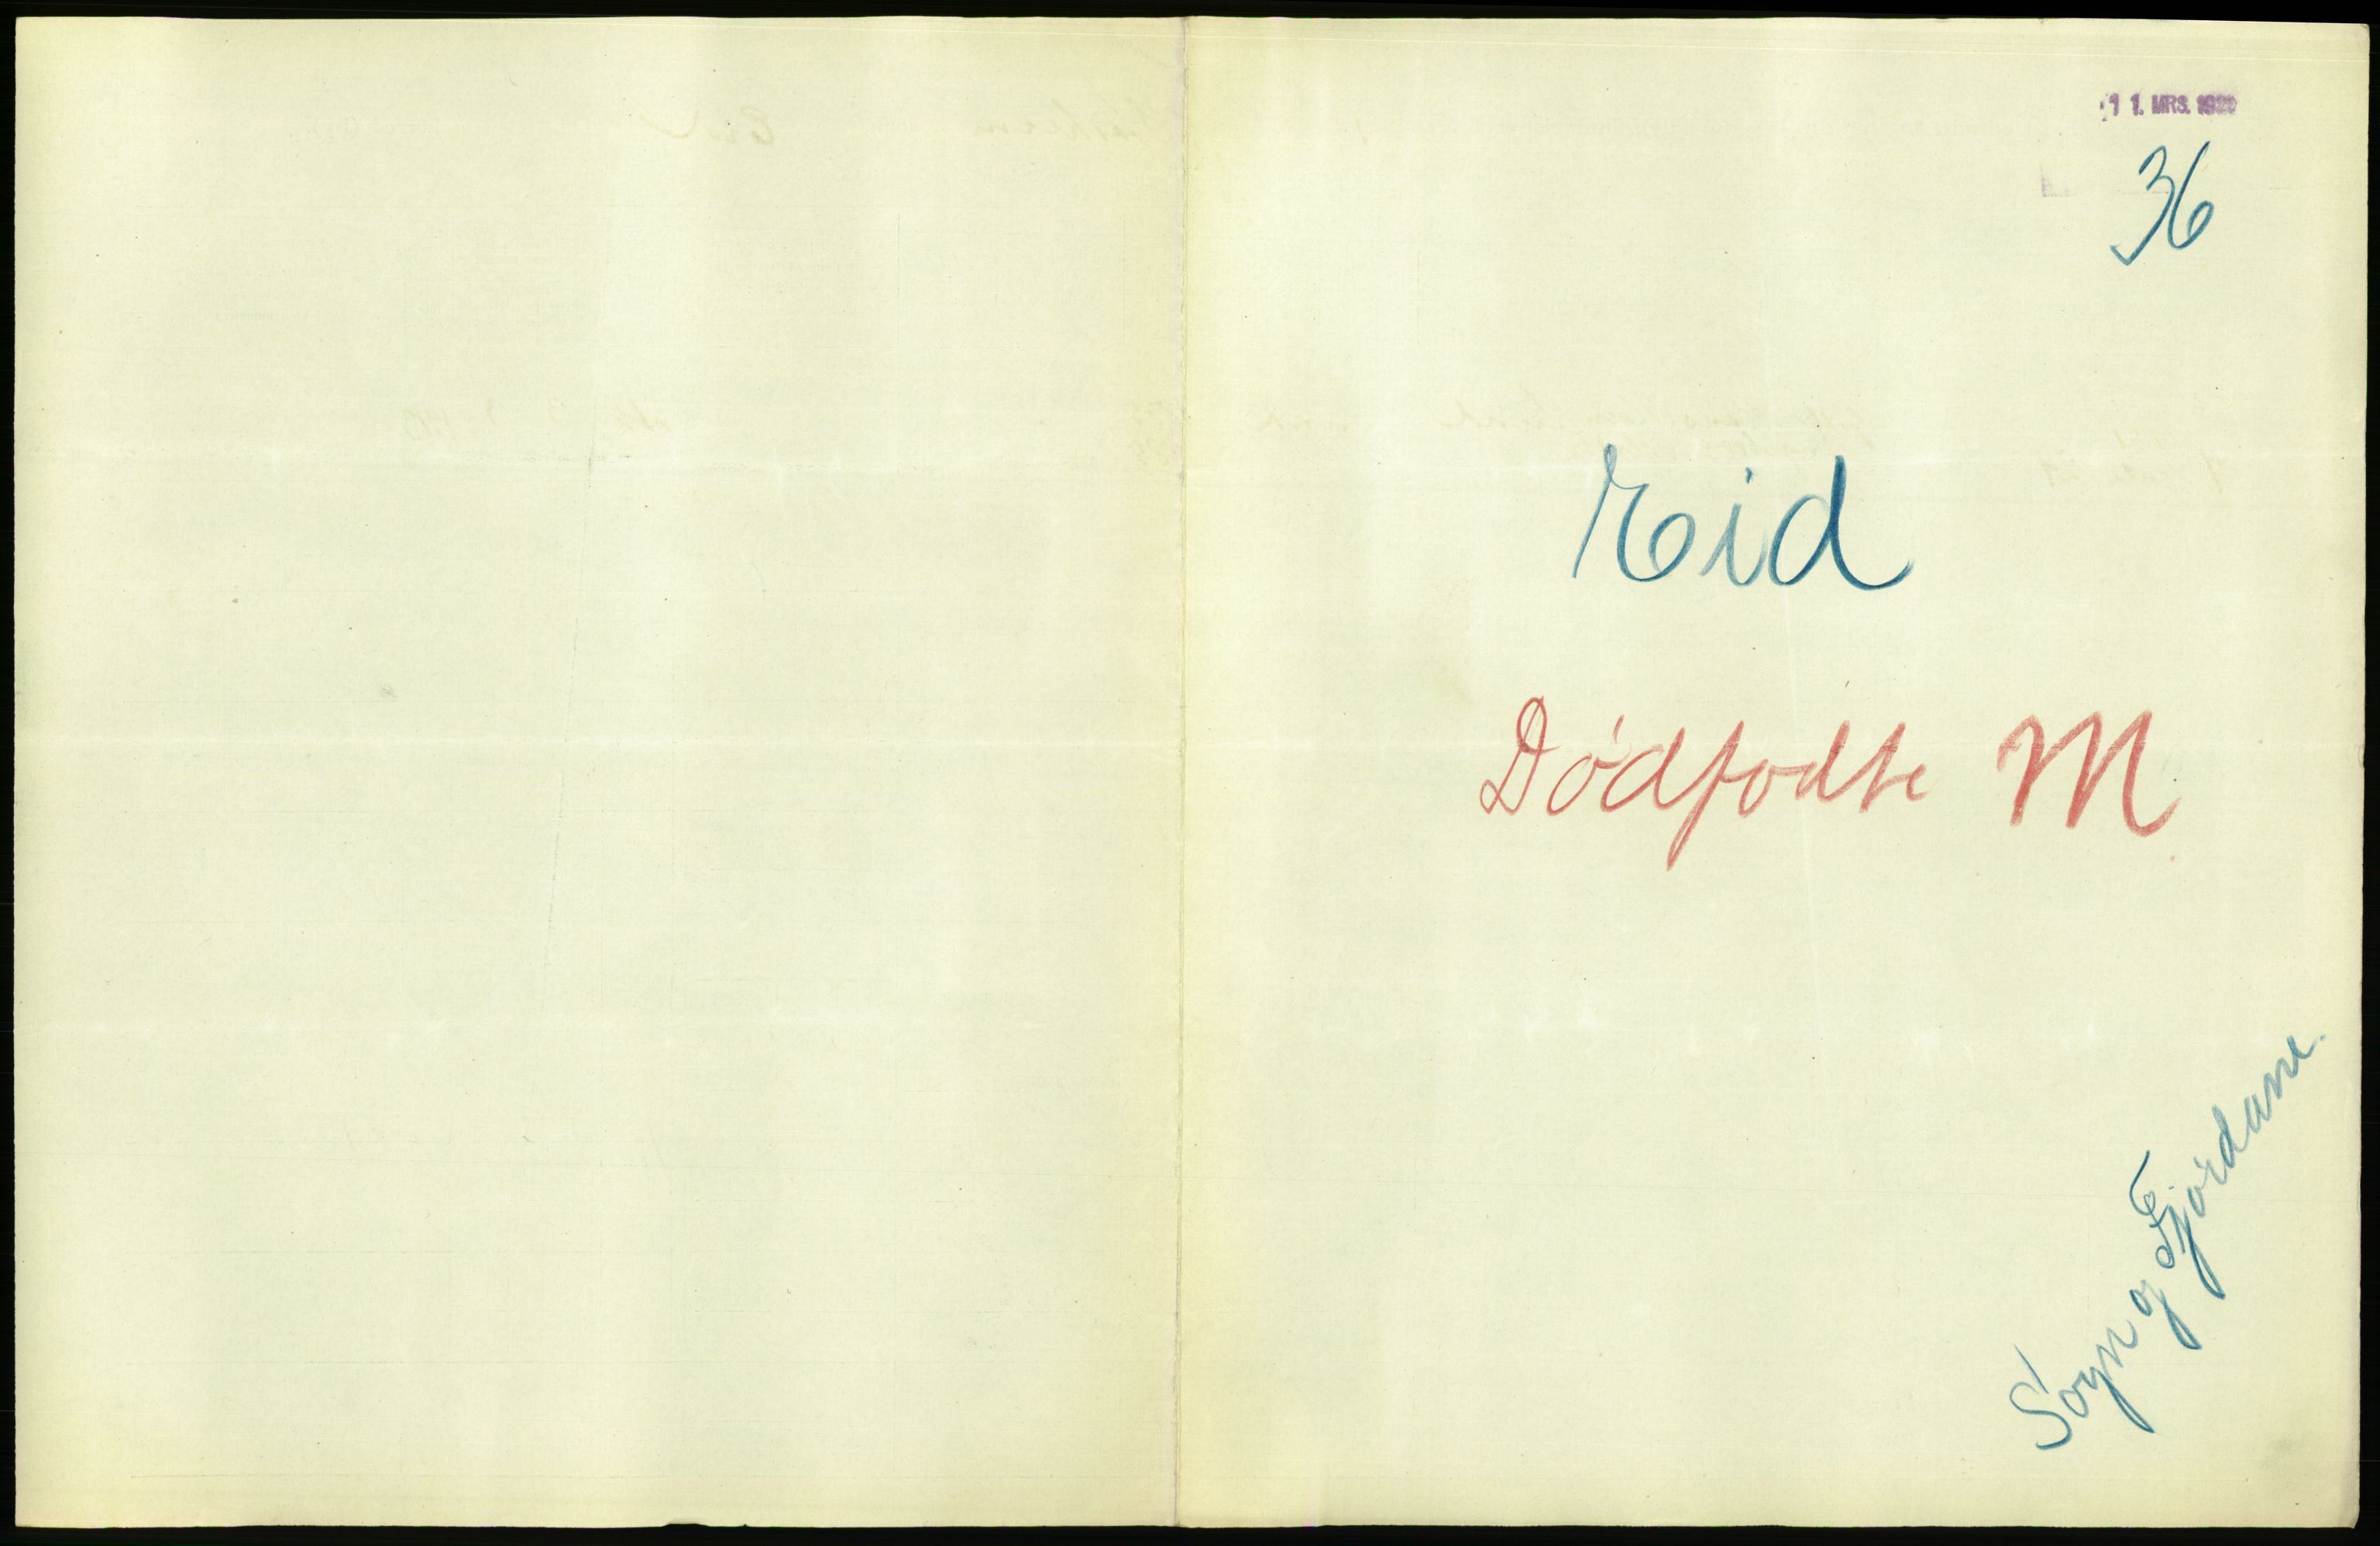 11. MRS. 1920
36
Eid
Dødfødte M
Sogn og Fjordane.